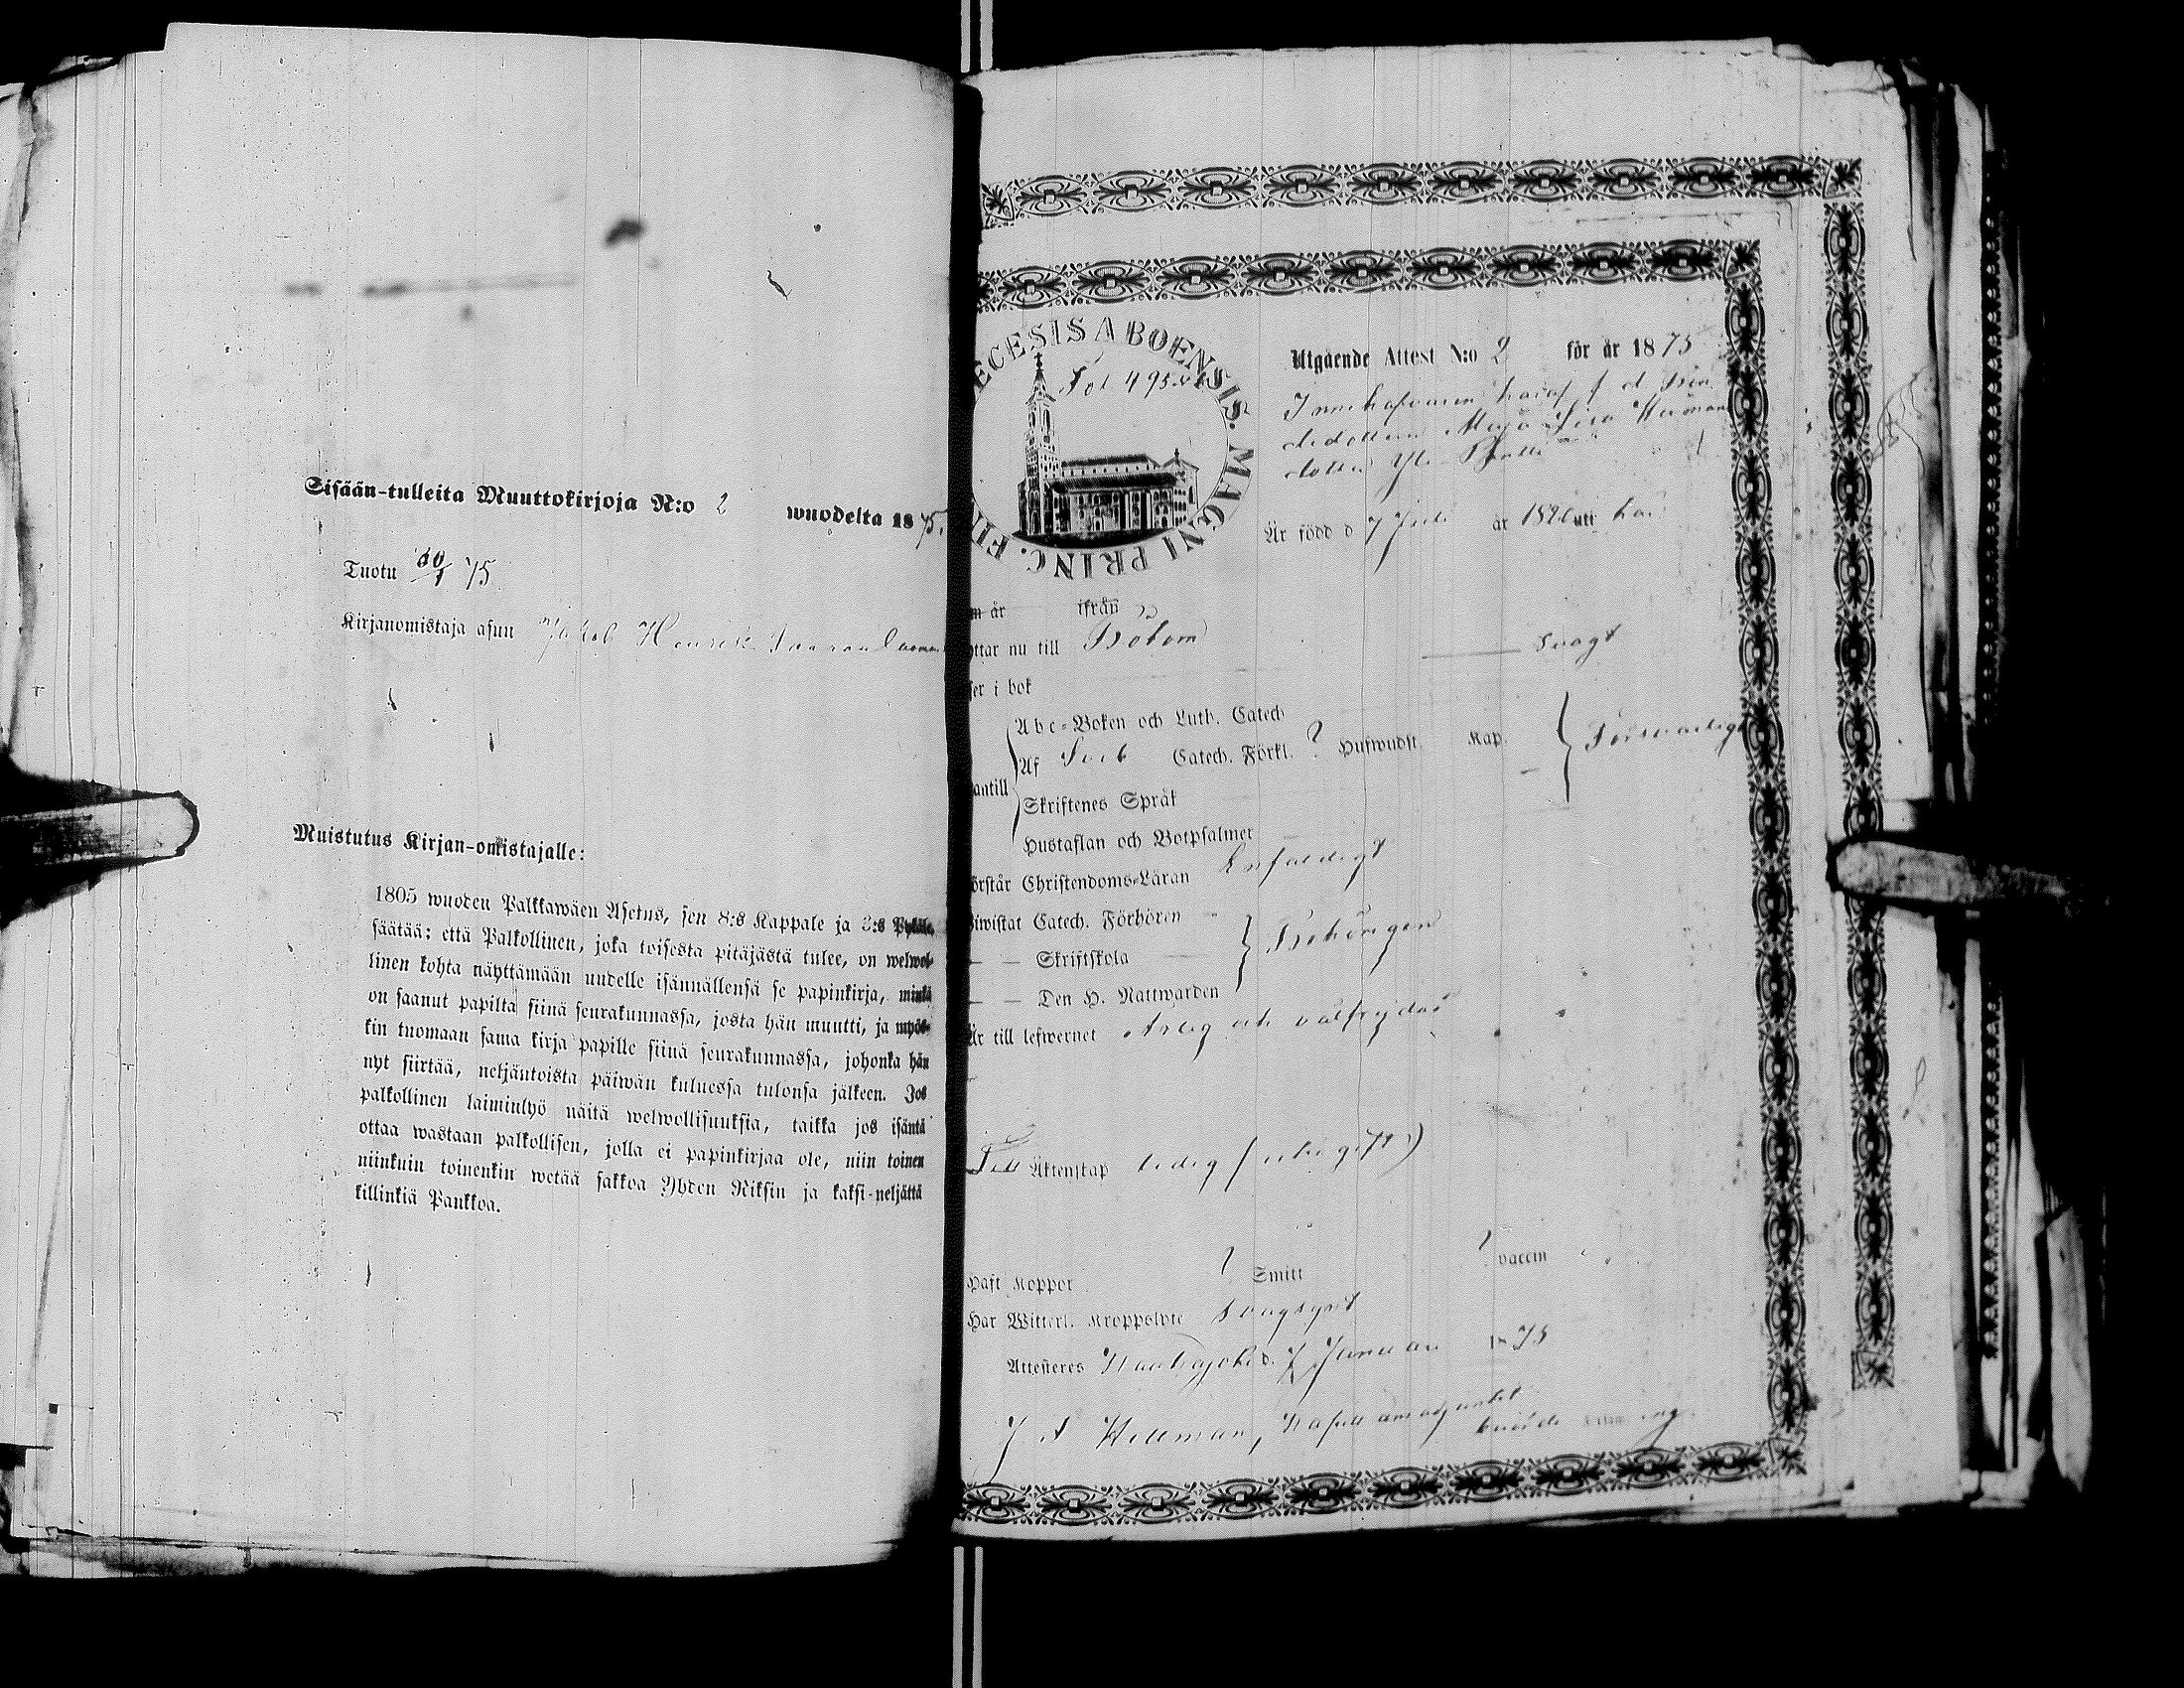 Sisään-tulleita Muuttokirjoja N:o 2 wuodelta 1875.
Tuotu 30/1 75
Kirjanomistaja asuu Jakob Henrik
Muistutus Kirjan-omistajalle:
1805 wuoden Palkkawäen Asetus, sen 8:s Kappale ja 3:s Pykälä,
säätää: että Palkollinen, joka toisesta pitäjästä tulee, on welwol-
linen kohta näyttämään uudelle isännällensä se papinkirja, minkä
on saanut papilta siinä seurakunnassa, josta hän muutti, ja myös-
kin tuomaan sama kirja papille siinä seurakunnassa, johonka hän
nyt siirtää, neljäntoista päiwän kuluessa tulonsa jälkeen. Jos
palkollinen laiminlyö näitä welwollisuuksia, taikka jos isäntä
ottaa wastaan palkollisen, jolla ei papinkirjaa ole, niin toinen
niinkuin toinenkin wetää sakkoa Yhden Riksin ja kaksi-neljättä
killinkiä Pankkoa.
ECESIS ABOENSIS. MAGNI PRINC. FI
Fol 495
Utgående Attest N:o 2 för år 1875
Innehafvaren häraf, f d Bon
dedottern Maja Lisa Herman
dotter Yli
Är född d 7 Juli år 182 uti
m år ifrån
ttar nu till Bötom
ser i bok Svagt
Abc-Boken och Luth. Catech
Af Sveb Catech. Förkl. ? Hufwudst. Kap. Försvarligt
antill
Skriftenes Språk
Hustaflan och Botpsalmer
örstår Christendoms-Läran Enfaldigt
iwistat Catech. Förhören
— — Skriftskola Behörigen
— — Den H. Nattwarden
Är till lefwernet ärlig och välfrejdad
Till Äktenskap ledig (enligt
Haft Koppor ? Smitt ? vaccin
Har Witterl. Kroppslyte svagsynt
Attesteras d. 7 Januari 1875
J A Hellman, Kapellansadjunkt